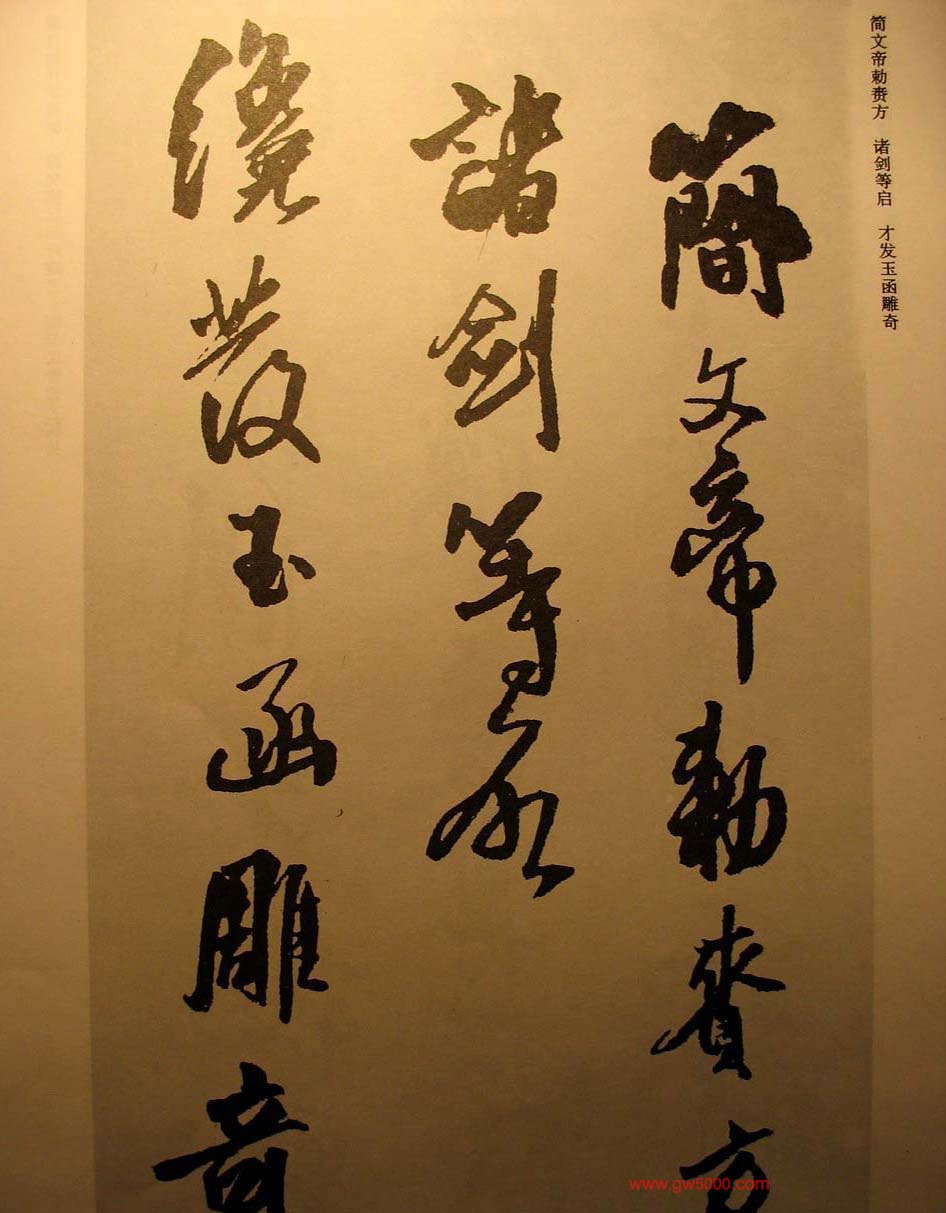 简文帝勅赉方 诸剑等启 才发玉函雕奇
簡文帝勅賚方
諸剑等啓
纔發玉函雕奇
www.gw5000.com